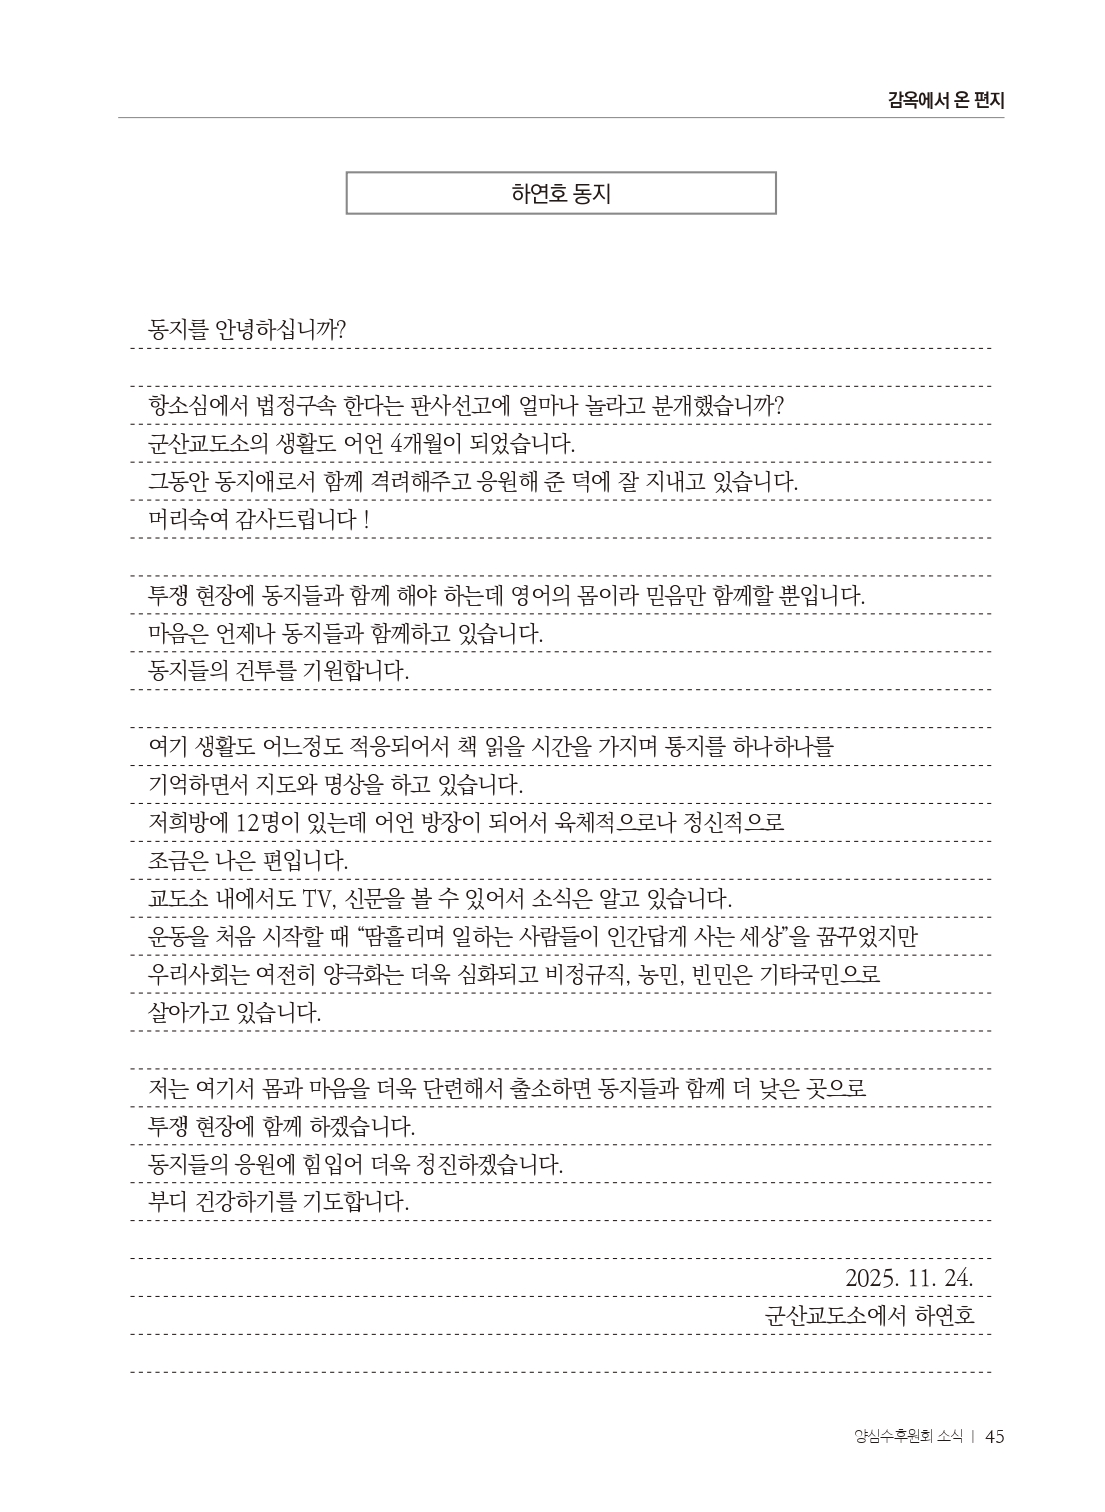 감옥에서 온 편지
하연호 동지
동지를 안녕하십니까?
항소심에서 법정구속 한다는 판사선고에 얼마나 놀라고 분개했습니까?
군산교도소의 생활도 어언 4개월이 되었습니다.
그동안 동지애로서 함께 격려해주고 응원해 준 덕에 잘 지내고 있습니다.
머리숙여 감사드립니다 !
투쟁 현장에 동지들과 함께 해야 하는데 영어의 몸이라 믿음만 함께할 뿐입니다.
마음은 언제나 동지들과 함께하고 있습니다.
동지들의 건투를 기원합니다.
여기 생활도 어느정도 적응되어서 책 읽을 시간을 가지며 통지를 하나하나를
기억하면서 지도와 명상을 하고 있습니다.
저희방에 12명이 있는데 어언 방장이 되어서 육체적으로나 정신적으로
조금은 나은 편입니다.
교도소 내에서도 TV, 신문을 볼 수 있어서 소식은 알고 있습니다.
운동을 처음 시작할 때 “땀흘리며 일하는 사람들이 인간답게 사는 세상”을 꿈꾸었지만
우리사회는 여전히 양극화는 더욱 심화되고 비정규직, 농민, 빈민은 기타국민으로
살아가고 있습니다.
저는 여기서 몸과 마음을 더욱 단련해서 출소하면 동지들과 함께 더 낮은 곳으로
투쟁 현장에 함께 하겠습니다.
동지들의 응원에 힘입어 더욱 정진하겠습니다.
부디 건강하기를 기도합니다.
2025. 11. 24.
군산교도소에서 하연호
양심수후원회 소식 | 45